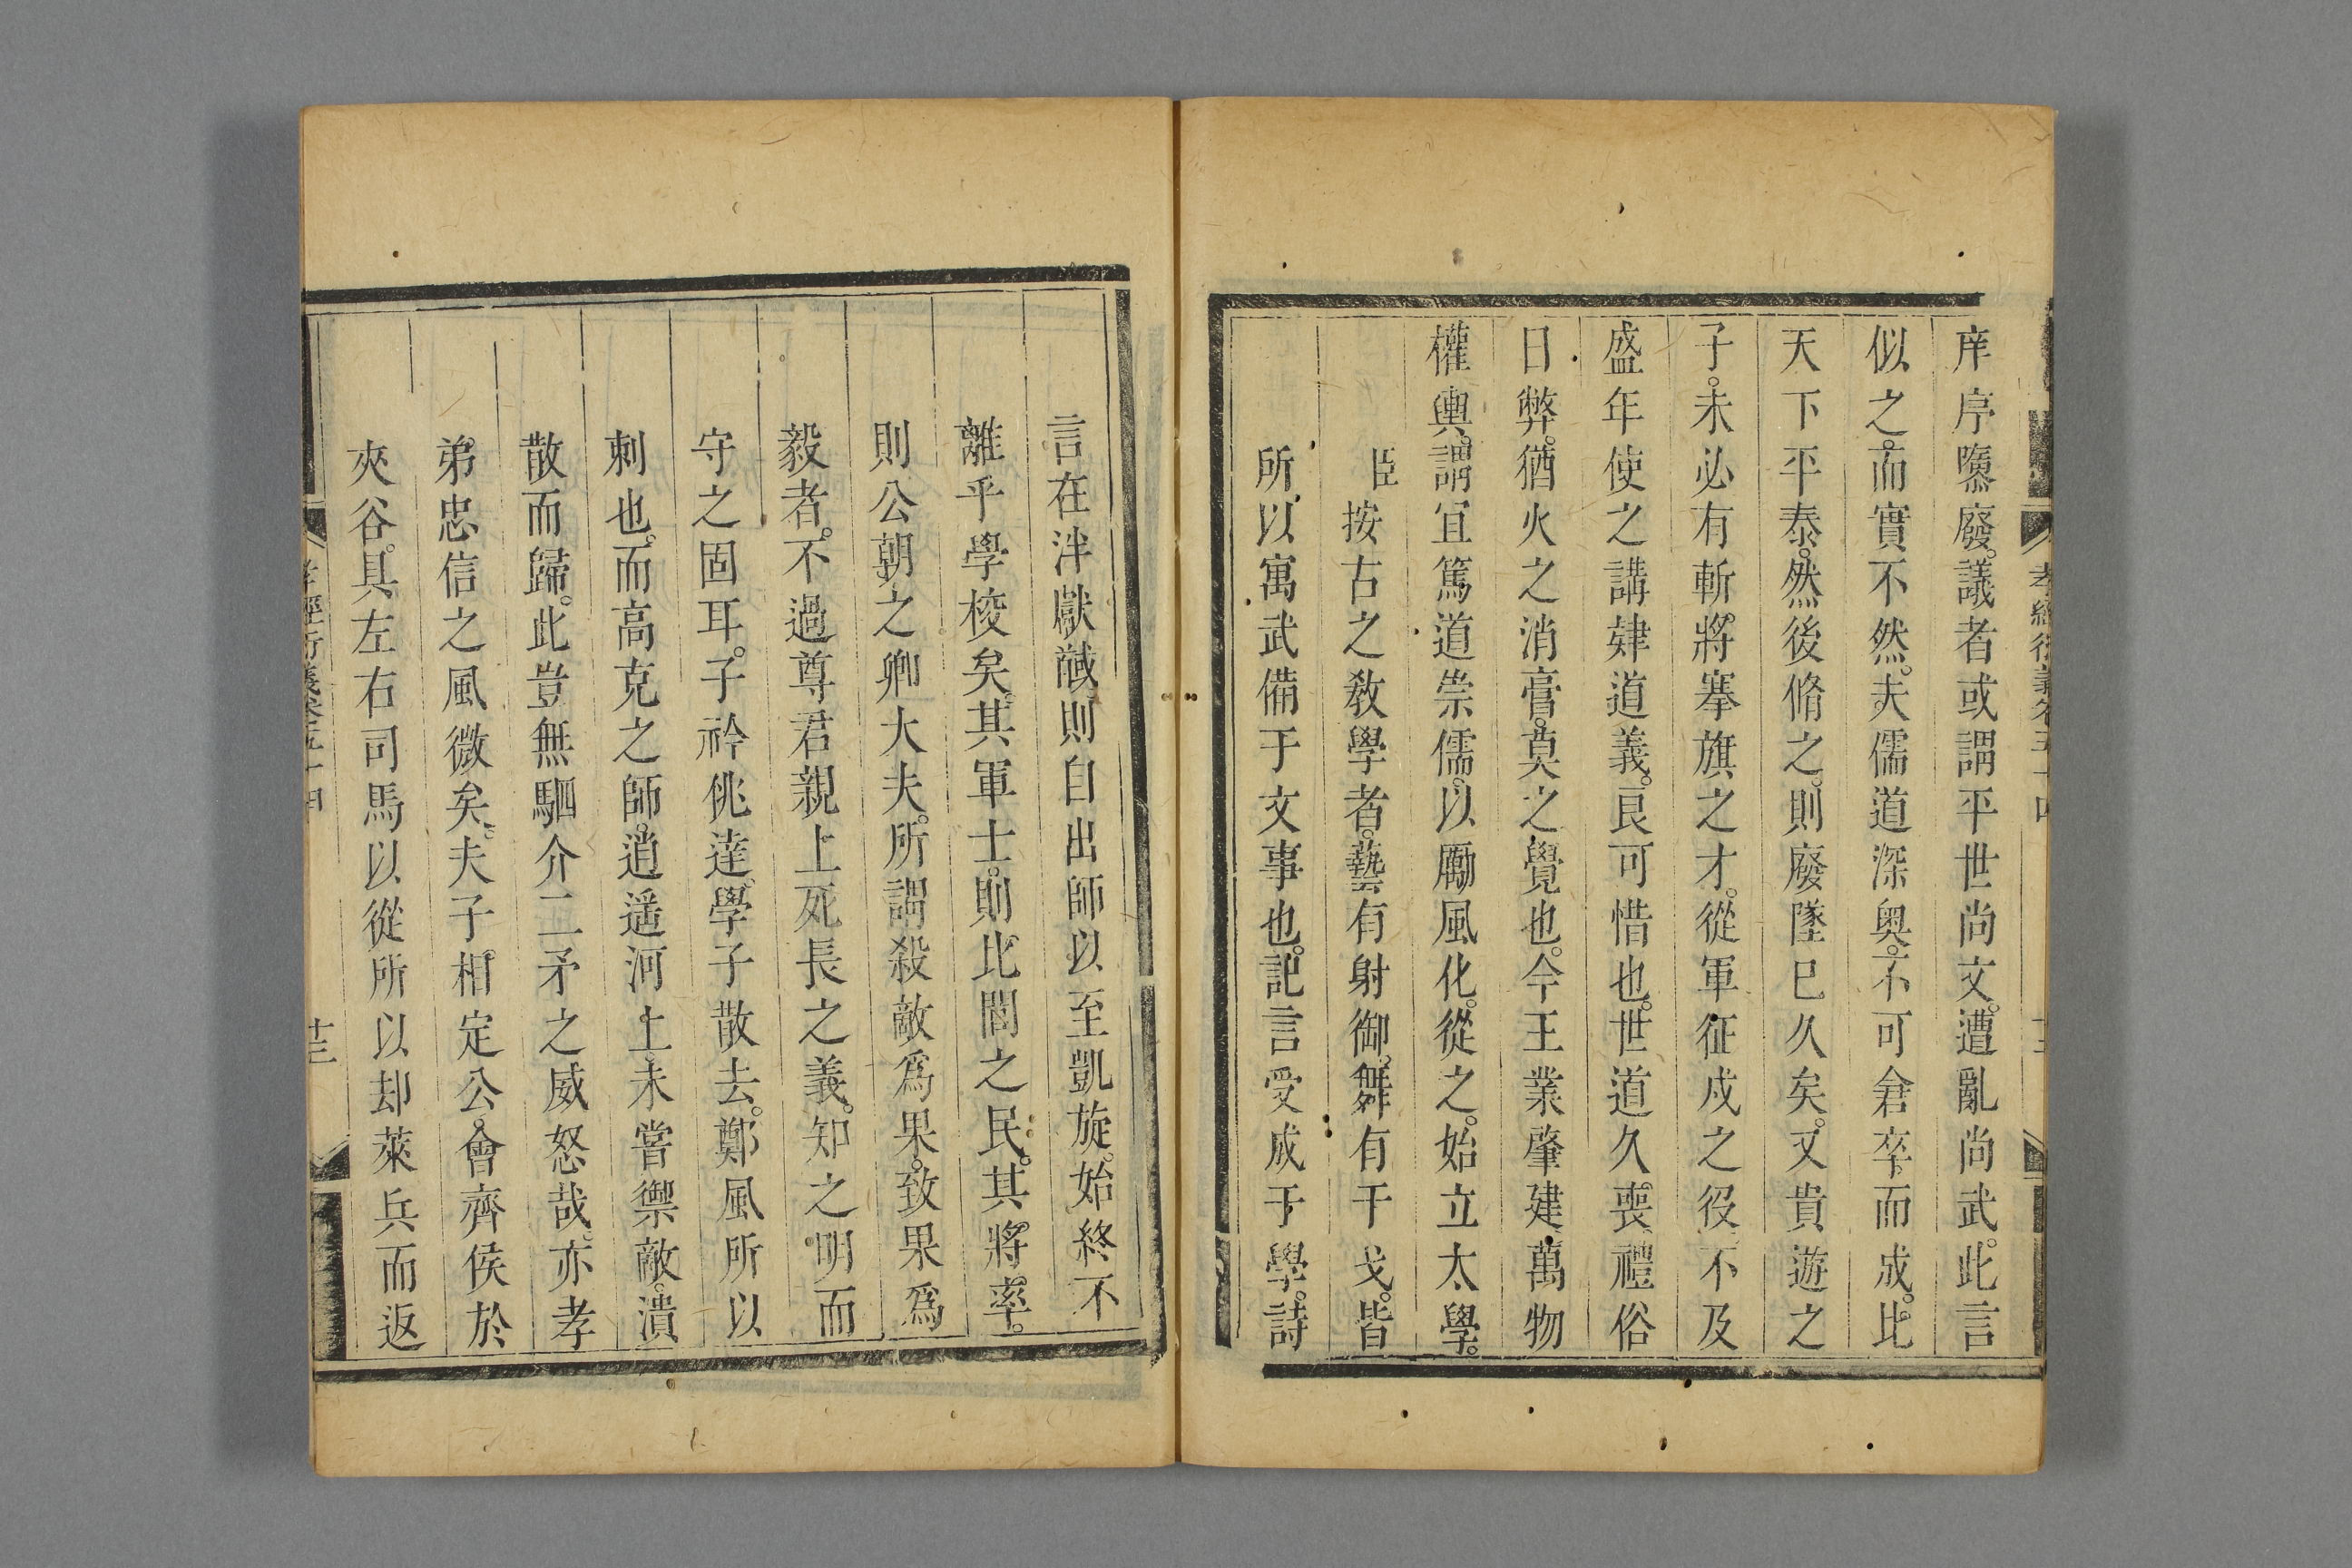 庠序隳廢。議者或謂平世尚文。遭亂尚武。此言
似之。而實不然。夫儒道深奥。不可倉卒而成。比
天下平泰。然後脩之。則廢墜已久矣。又貴遊之
子。未必有斬將搴旗之才。從軍征戍之役。不及
盛年使之講肄道義。良可惜也。世道久喪。禮俗
日弊。猶火之消膏。莫之覺也。今王業肇建。萬物
權輿。謂宜篤道崇儒。以勵風化。從之。始立太學。
臣按古之敎學者。藝有射御。舞有干戈。皆
所以寓武備于文事也。記言受成于學。詩
言在泮獻馘。則自出師以至凱旋。始終不
離乎學校矣。其軍士。則比閭之民。其將率。
則公朝之卿大夫。所謂殺敵爲果。致果爲
毅者。不過尊君親上死長之義。知之明而
守之固耳。子衿佻達。學子散去。鄭風所以
刺也。而高克之師。逍遥河上。未嘗禦敵。潰
散而歸。此豈無駟介二矛之威怒哉。亦孝
弟忠信之風微矣。夫子相定公。會齊侯於
夾谷。具左右司馬以從。所以却萊兵而返
孝經衍義卷五十四
十三